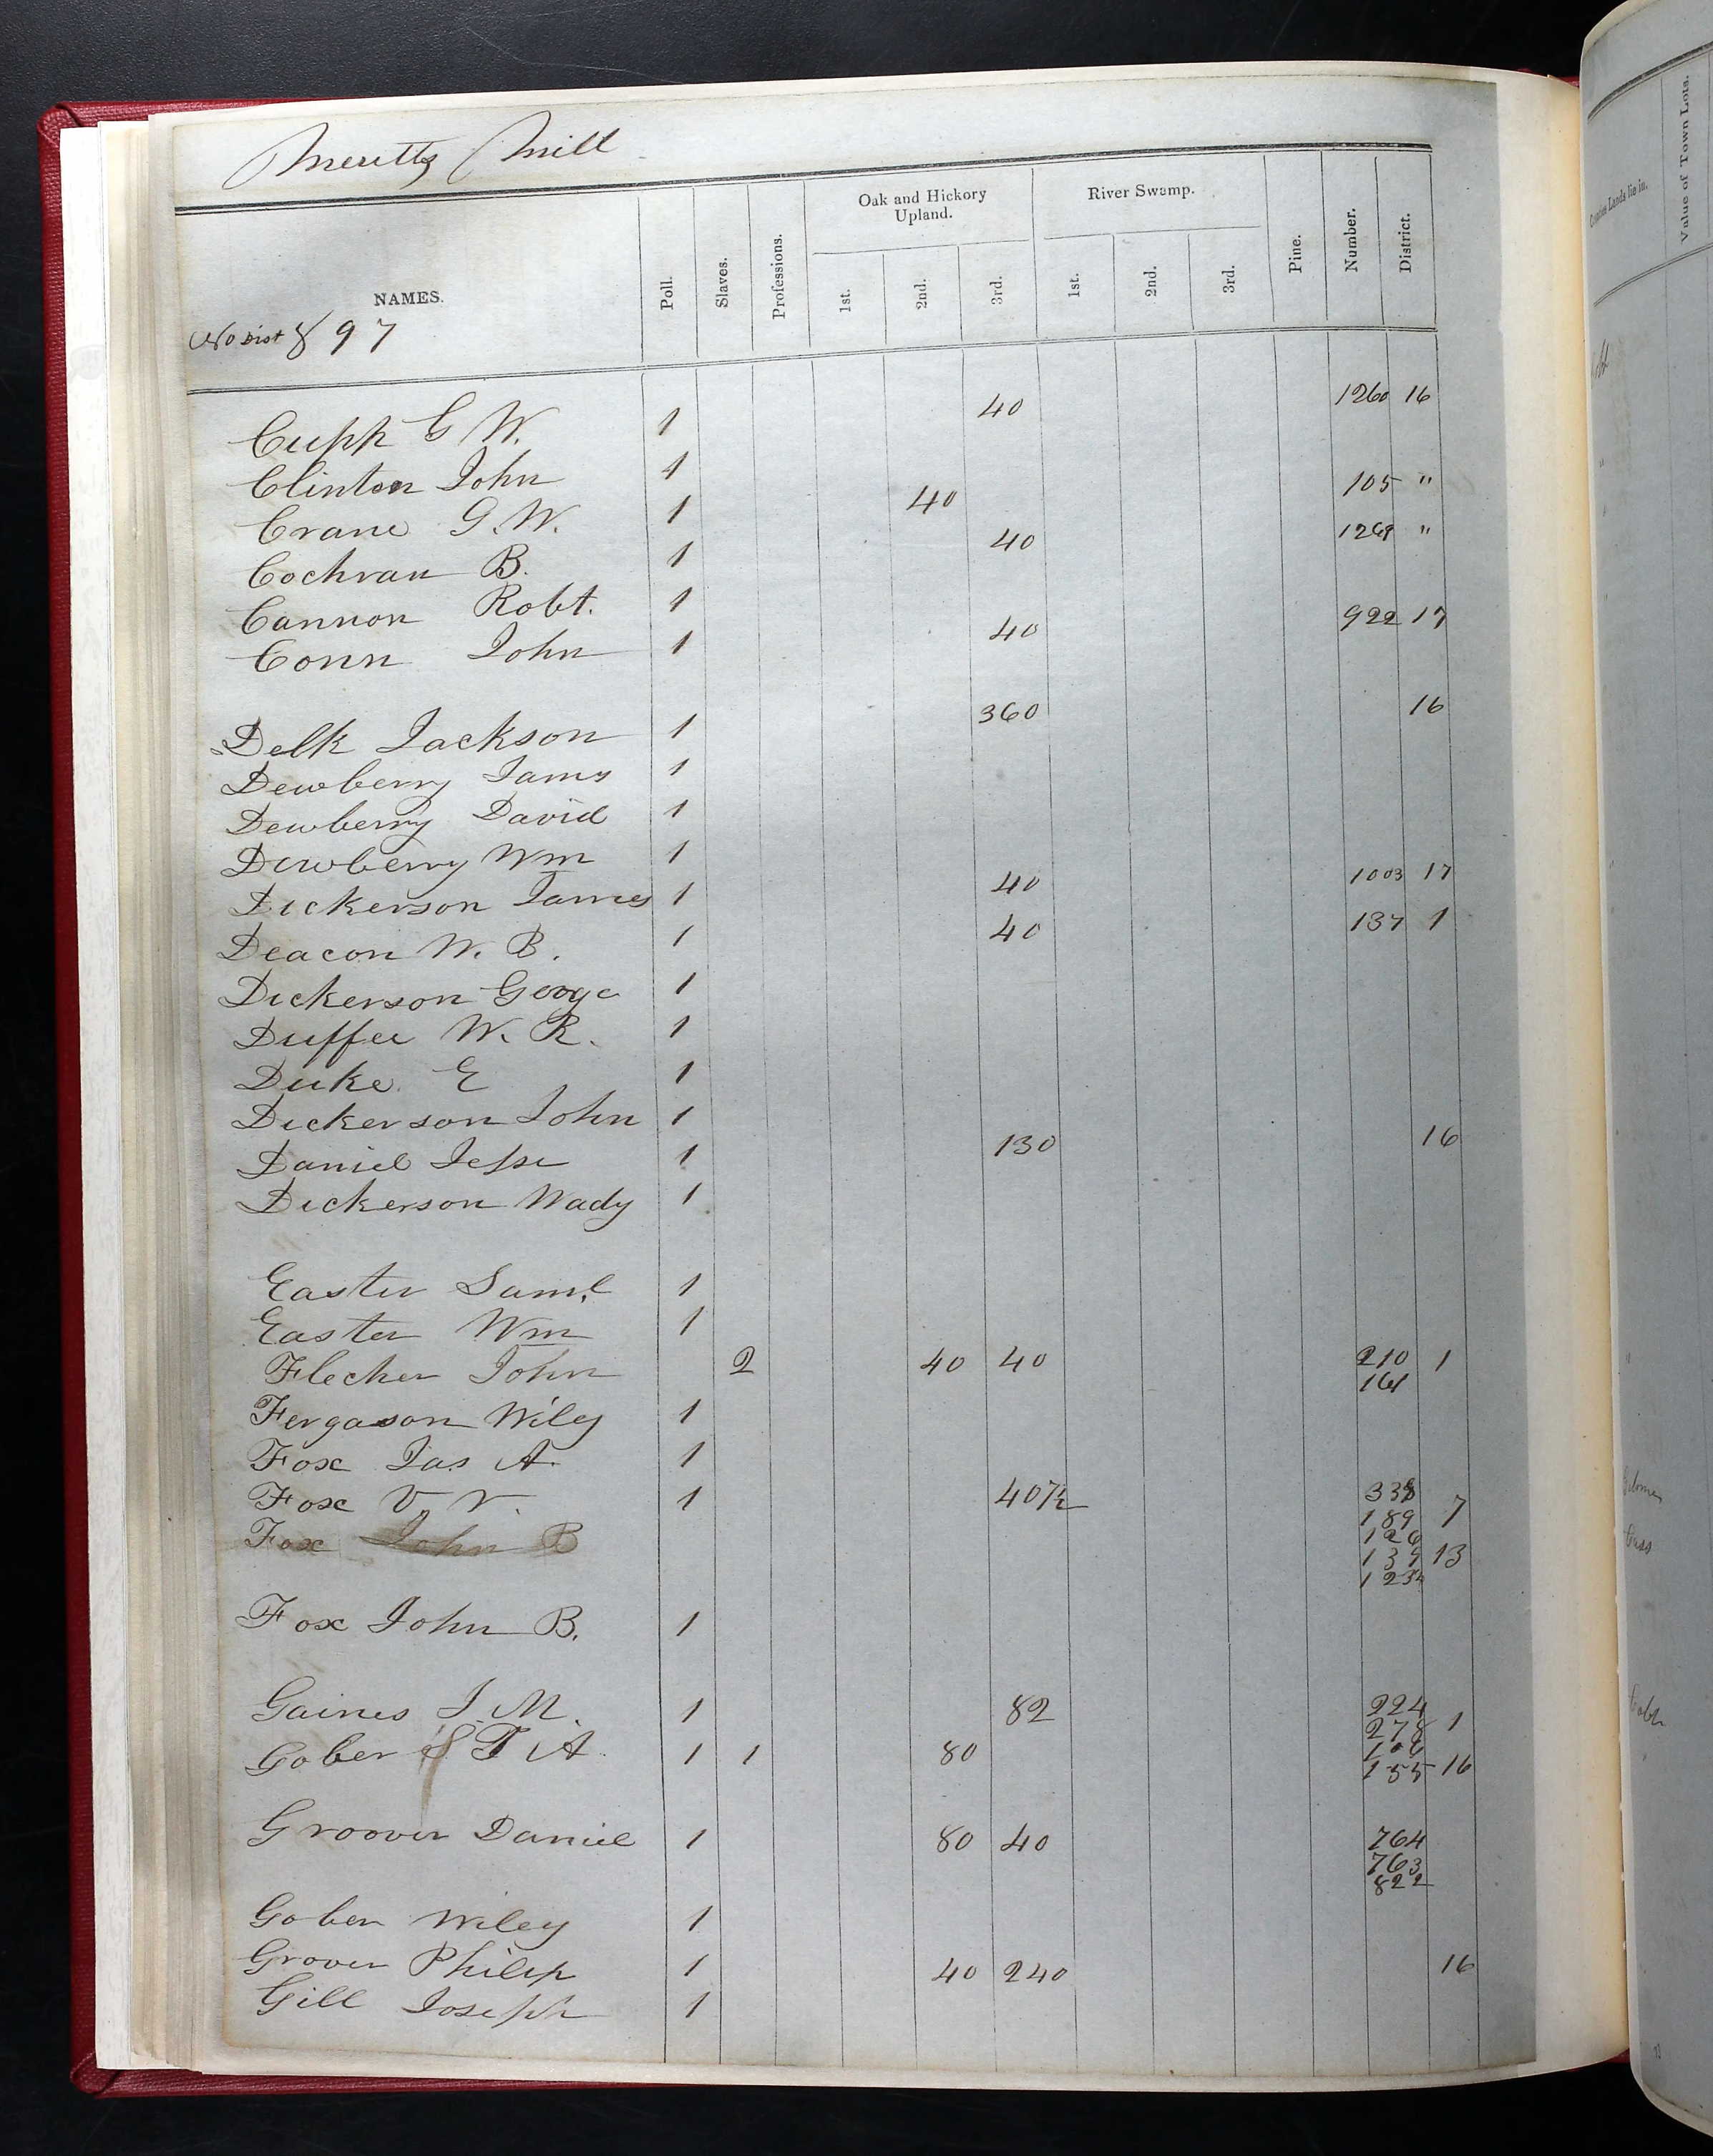 Merritts Mill
NAMES.
Poll.
Slaves.
Professions.
Oak and Hickory
Upland.
1st.
2nd.
3rd.
River Swamp.
1st.
2nd.
3rd.
Pine.
Number.
District.
No Dist 897
Cupp G W. 1 40 1260 16
Clinton John 1
Crane G. W. 1 40 105 "
Cochran B. 1 40 1269 "
Cannon Robt. 1
Conn John 1 40 922 17
Delk Jackson 1 360 16
Dewberry James 1
Dewberry David 1
Dewberry Wm 1
Dickerson James 1 40 1003 17
Deacon W. B. 1 40 137 1
Dickerson George 1
Duffee W. R. 1
Duke E 1
Dickerson John 1
Daniel Jesse 1 130 16
Dickerson Wady 1
Easter Saml 1
Easter Wm 1
Flecher John 2 40 40 210 1
161
Fergason Wiley 1
Fox Jas A. 1
Fox V. V. 1 407½ 338
189 7
Fox John B 126
139 13
123
Fox John B. 1
Gaines J. M. 1 82 224
278 1
Gober S T A. 1 1 80 108
155 16
Groover Daniel 1 80 40 764
763
822
Gober Wiley 1
Grover Philip 1 40 240 16
Gill Joseph 1
Counties Lands lie in.
Value of Town Lots.
Gilmer
Cass
Cobb